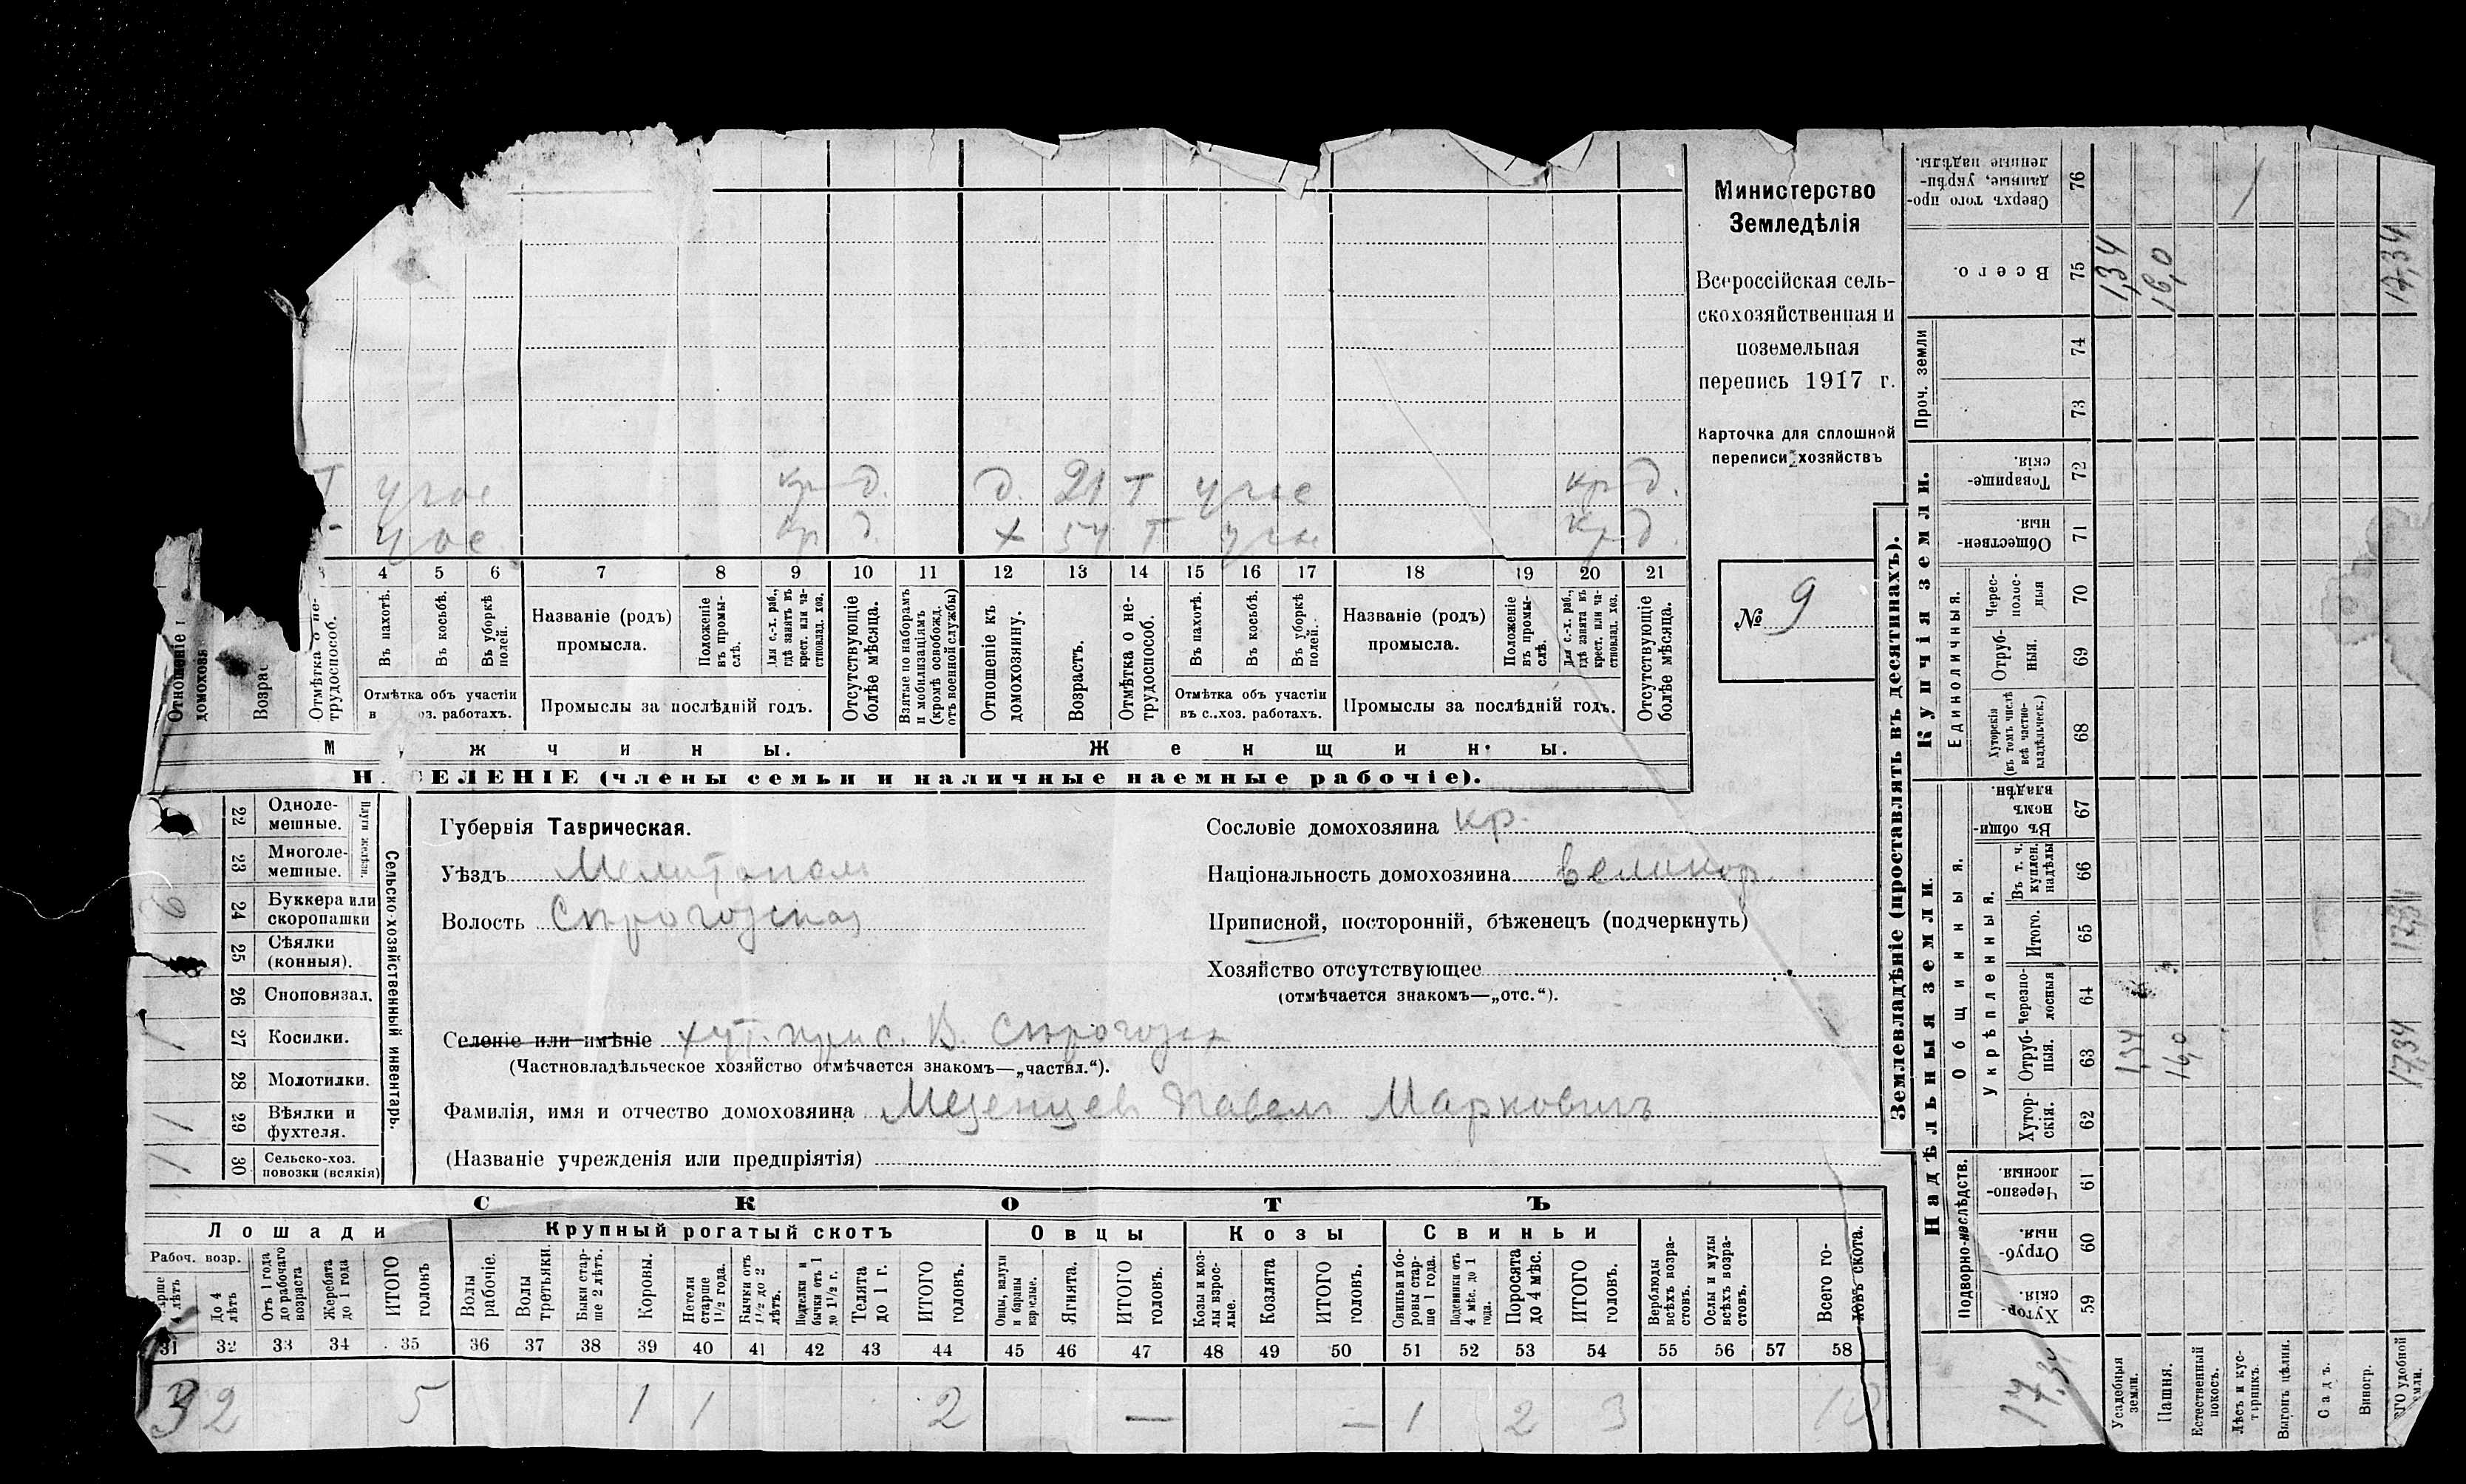 Министерство
Земледѣлія
Всероссійская сель-
скохозяйственная и
поземельная
перепись 1917 г.
Карточка для сплошной
переписи хозяйствъ
№ 9
Т у час кр д. д. 21 Т у час кр д.
кр д. х 54 Т кр д.
3 4 5 6 7 8 9 10 11 12 13 14 15 16 17 18 19 20 21
Отношеніе
домохозя
Возрас
Отмѣтка о не-
трудоспособ.
Въ пахотѣ.
Въ косьбѣ.
Въ уборкѣ
полей.
Отмѣтка объ участіи
в оз. работахъ.
Названіе (родъ)
промысла.
Положеніе
въ промы-
слѣ.
Для с.-х. раб.,
гдѣ занятъ въ
крест. или ча-
стновлад. хоз.
Промыслы за послѣдній годъ.
Отсутствующіе
болѣе мѣсяца.
Взятые по наборамъ
и мобилизаціямъ
(кромѣ освобожд.
отъ военной службы)
Отношеніе къ
домохозяину.
Возрастъ.
Отмѣтка о не-
трудоспособ.
Въ пахотѣ.
Въ косьбѣ.
Въ уборкѣ
полей.
Отмѣтка объ участіи
въ с.-хоз. работахъ.
Названіе (родъ)
промысла.
Положеніе
въ промы-
слѣ.
Для с.-х. раб.,
гдѣ занята въ
крест. или ча-
стновлад. хоз.
Промыслы за послѣдній годъ.
Отсутствующіе
болѣе мѣсяца.
М жчины. Женщины.
Н СЕЛЕНІЕ (члены семьи и наличные наемные рабочіе).
22 Одноле-
мешные.
23 Многоле-
мешные.
Плуги желѣзн.
24 Буккера или
скоропашки
25 Сѣялки
(конныя).
26 Сноповязал.
27 Косилки. 1
28 Молотилки.
29 Вѣялки и
фухтеля. 1
30 Сельско-хоз.
повозки (всякія) 1
Сельско-хозяйственный инвентарь.
Губернія Таврическая.
Уѣздъ Мелитополь
Волость Сѣрогозская
Сословіе домохозяина кр.
Національность домохозяина великор.
Приписной, посторонній, бѣженецъ (подчеркнуть)
Хозяйство отсутствующее
(отмѣчается знакомъ—„отс.“).
Селеніе или имѣніе хут. при с. В. Сѣрогозы
(Частновладѣльческое хозяйство отмѣчается знакомъ—„частвл.“).
Фамилія, имя и отчество домохозяина Мезенцевъ Павелъ Марковичъ
(Названіе учрежденія или предпріятія)
СКОТЪ
Лошади Крупный рогатый скотъ Овцы Козы Свиньи
Рабоч. возр.
арше
4 лѣтъ
До 4
лѣтъ
Отъ 1 года
до рабочаго
возраста
Жеребята
до 1 года
ИТОГО
головъ
Волы
рабочіе.
Волы
третьяки.
Быки стар-
ше 2 лѣтъ.
Коровы.
Нетели
старше
1½ года.
Бычки отъ
1½ до 2
лѣтъ.
Подтелки и
бычки отъ 1
до 1½ г.
Телята
до 1 г.
ИТОГО
головъ.
Овцы, валухи
и бараны
взрослые.
Ягнята.
ИТОГО
головъ.
Козы и коз-
лы взрос-
лые.
Козлята
ИТОГО
головъ.
Свиньи и бо-
ровы стар-
ше 1 года.
Подсвинки отъ
4 мѣс. до 1
года.
Поросята
до 4 мѣс.
ИТОГО
головъ.
Верблюды
всѣхъ возра-
стовъ.
Ослы и мулы
всѣхъ возра-
стовъ.
Всего го-
ловъ скота.
31 32 33 34 35 36 37 38 39 40 41 42 43 44 45 46 47 48 49 50 51 52 53 54 55 56 57 58
3 2 5 1 1 2 — — 1 2 3 10
Землевладѣніе (проставлять въ десятинахъ).
Купчія земли.
Надѣльныя земли.
Сверхъ того про-
данные, укрѣп-
ленные надѣлы.
76
Всего. 75 1,34 16,0 17,34
Проч. земли 74 73
Товарище-
скія.
72
Обществен-
ныя.
71
Единоличныя.
Черес-
полос-
ныя
70
Отруб-
ныя.
69
Хуторскія
(въ томъ числѣ
всѣ частно-
владѣльческ.)
68
Общинныя.
Въ общи-
номъ
владѣн.
67
Укрѣпленныя.
Въ т. ч.
куплен.
надѣлы
66
Итого.
65
Черезпо-
лосныя
64
Отруб-
ныя.
63 1,34 16,0 17,34
Хутор-
скія.
62
Подворно-наслѣдств.
Черезпо-
лосныя.
61
Отруб-
ныя.
60
Хутор-
скія.
59
17,34
Усадебныя
земли.
Пашня.
Естественный
покосъ.
Лѣсъ и кус-
тарникъ.
Выгонъ цѣлин.
Садъ.
Виногр.
ГО удобной
емли.